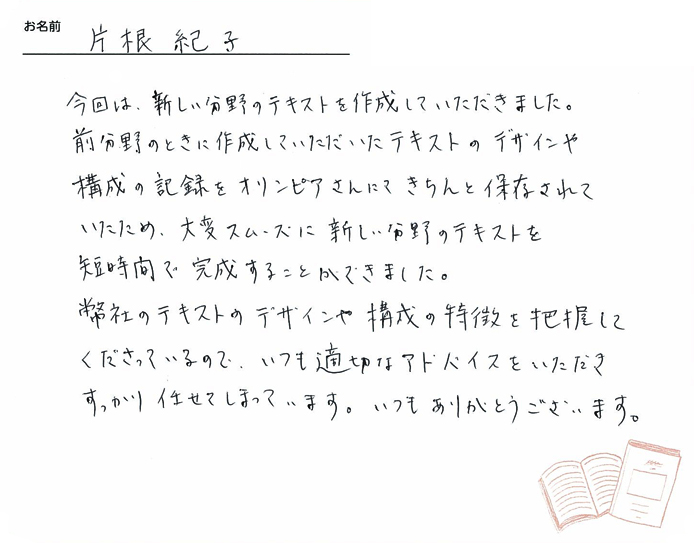 お名前 片根 紀子
今回は、新しい分野のテキストを作成していただきました。
前分野のときに作成していただいたテキストのデザインや
構成の記録をオリンピアさんにてきちんと保存されて
いたため、大変スムーズに新しい分野のテキストを
短時間で完成することができました。
弊社のテキストのデザインや構成の特徴を把握して
くださっているので、いつも適切なアドバイスをいただき
すっかり任せてしまっています。いつもありがとうございます。